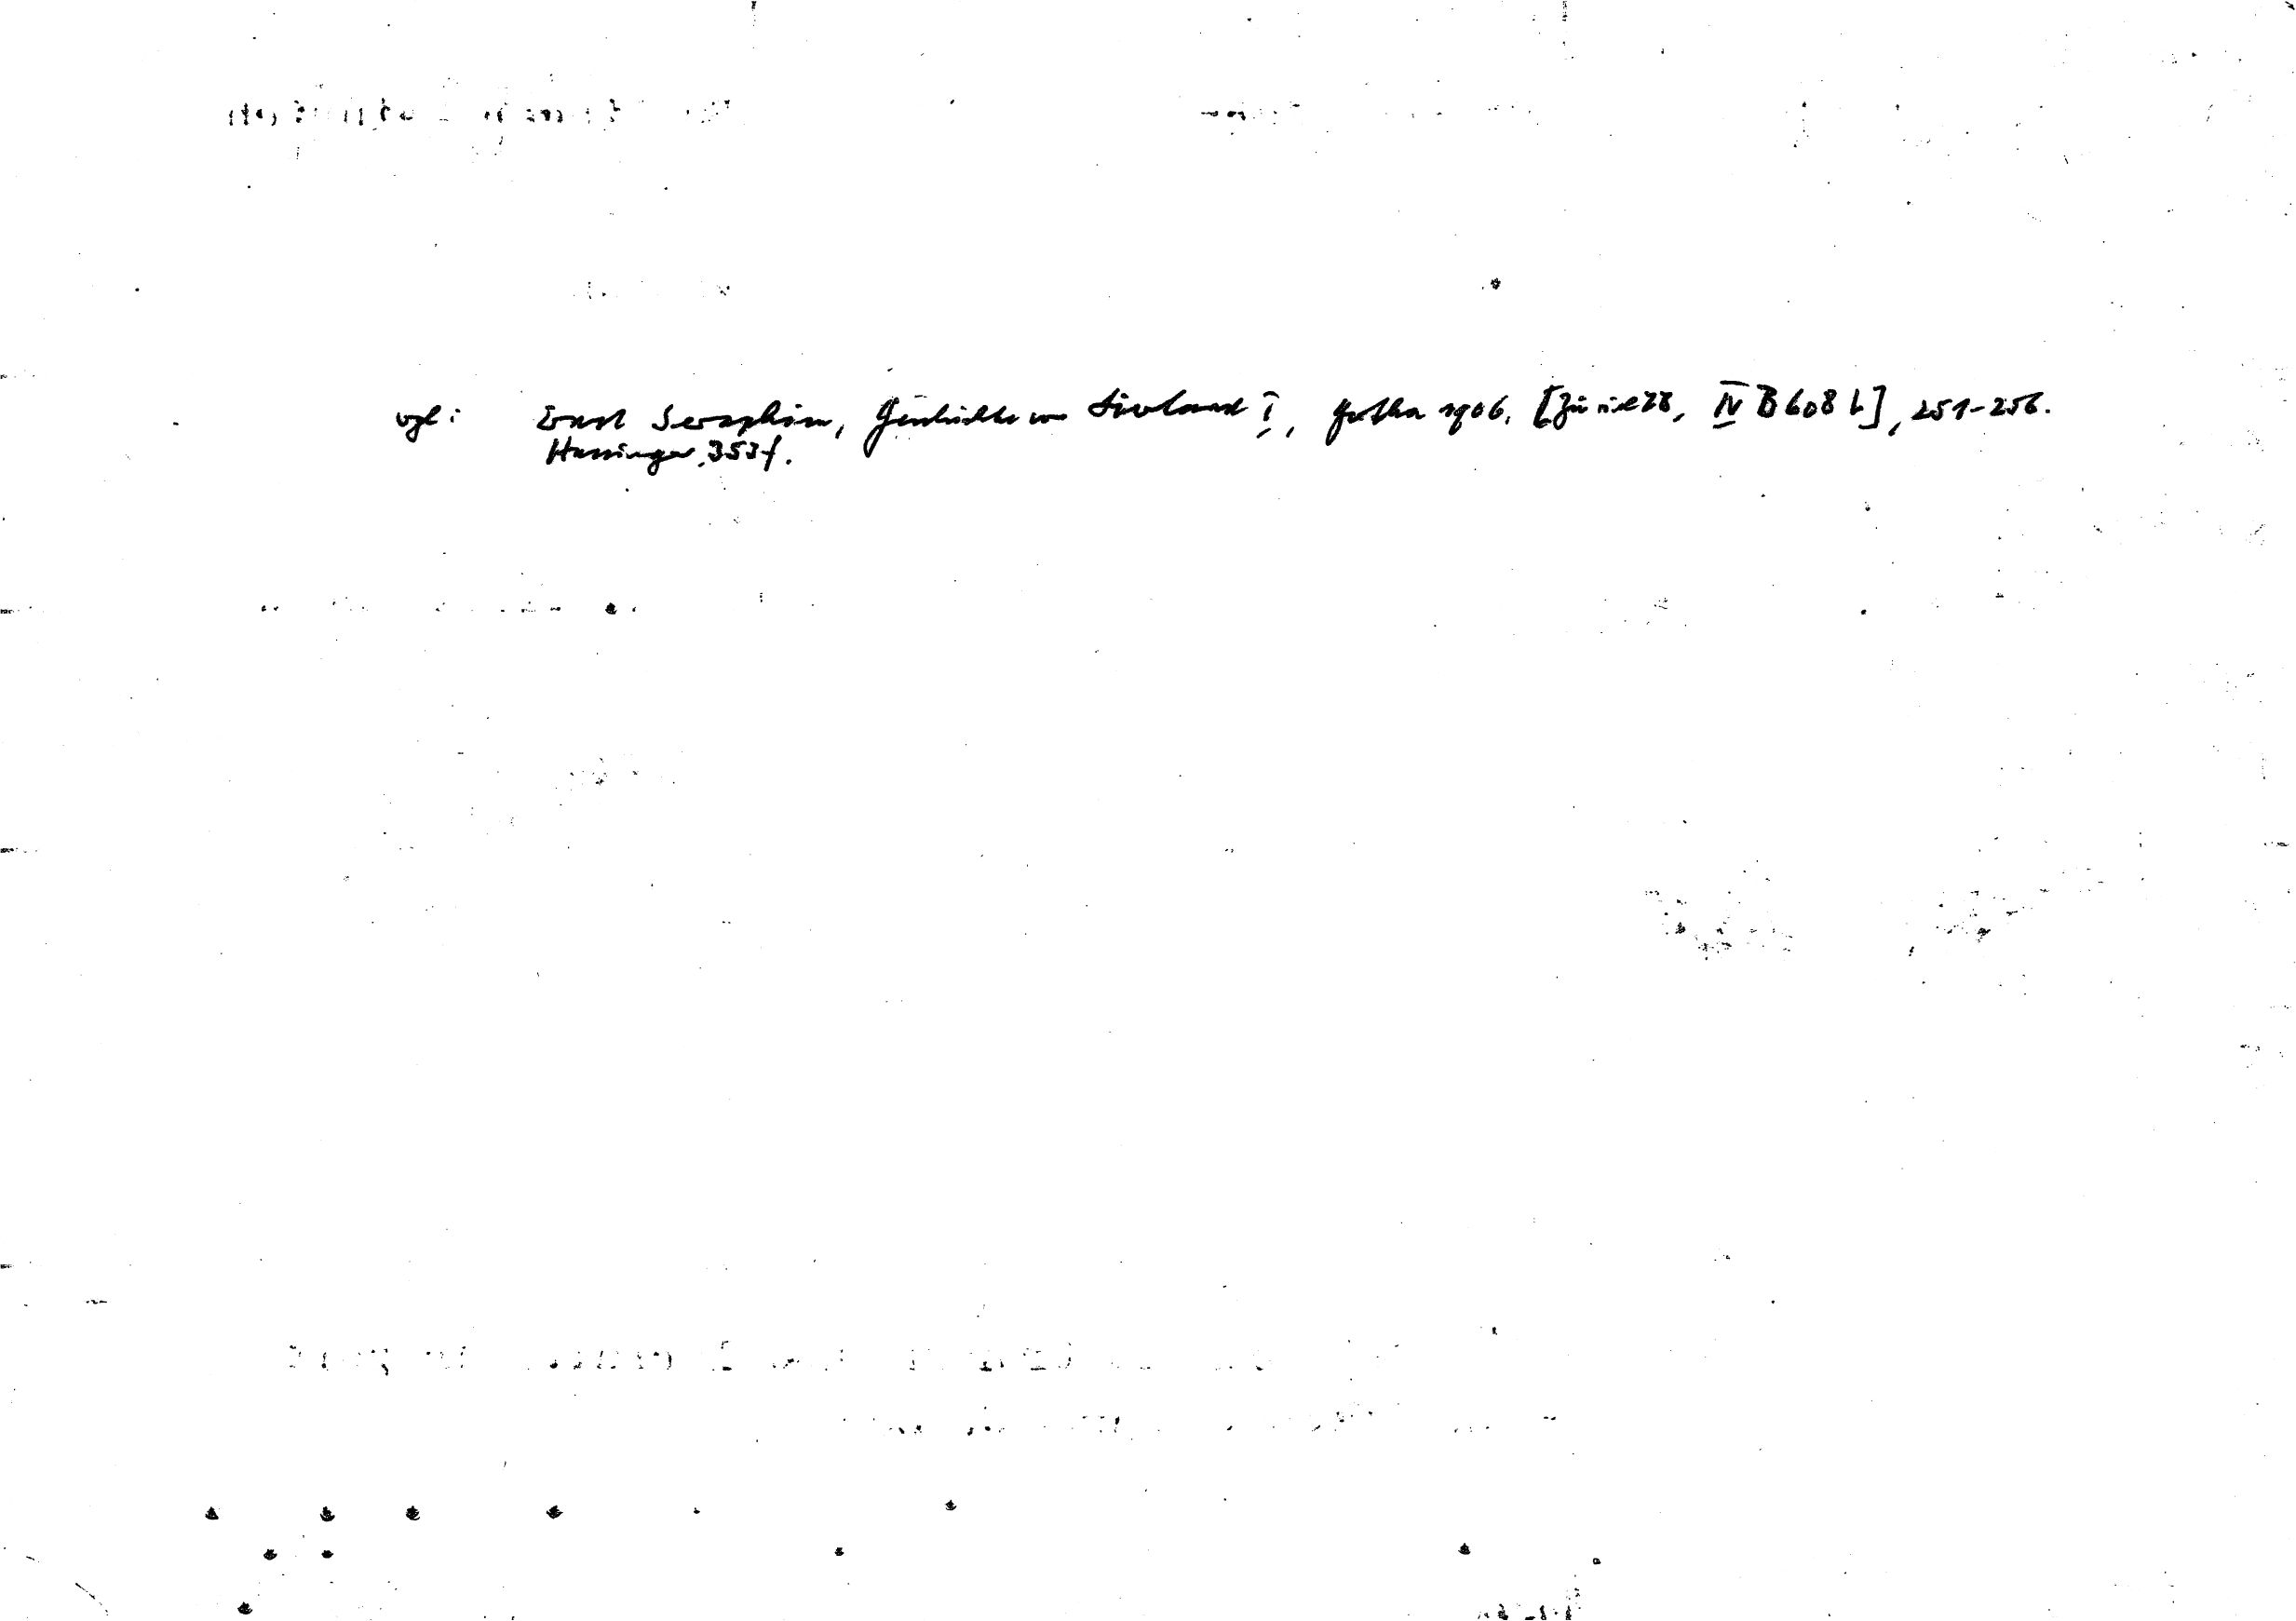 vgl: Ernst Seraphim, Geschichte von Livland I, Gotha 1906. [Zürich ZB, IV B 608 b], 251-256.
Hassinger, 353f.